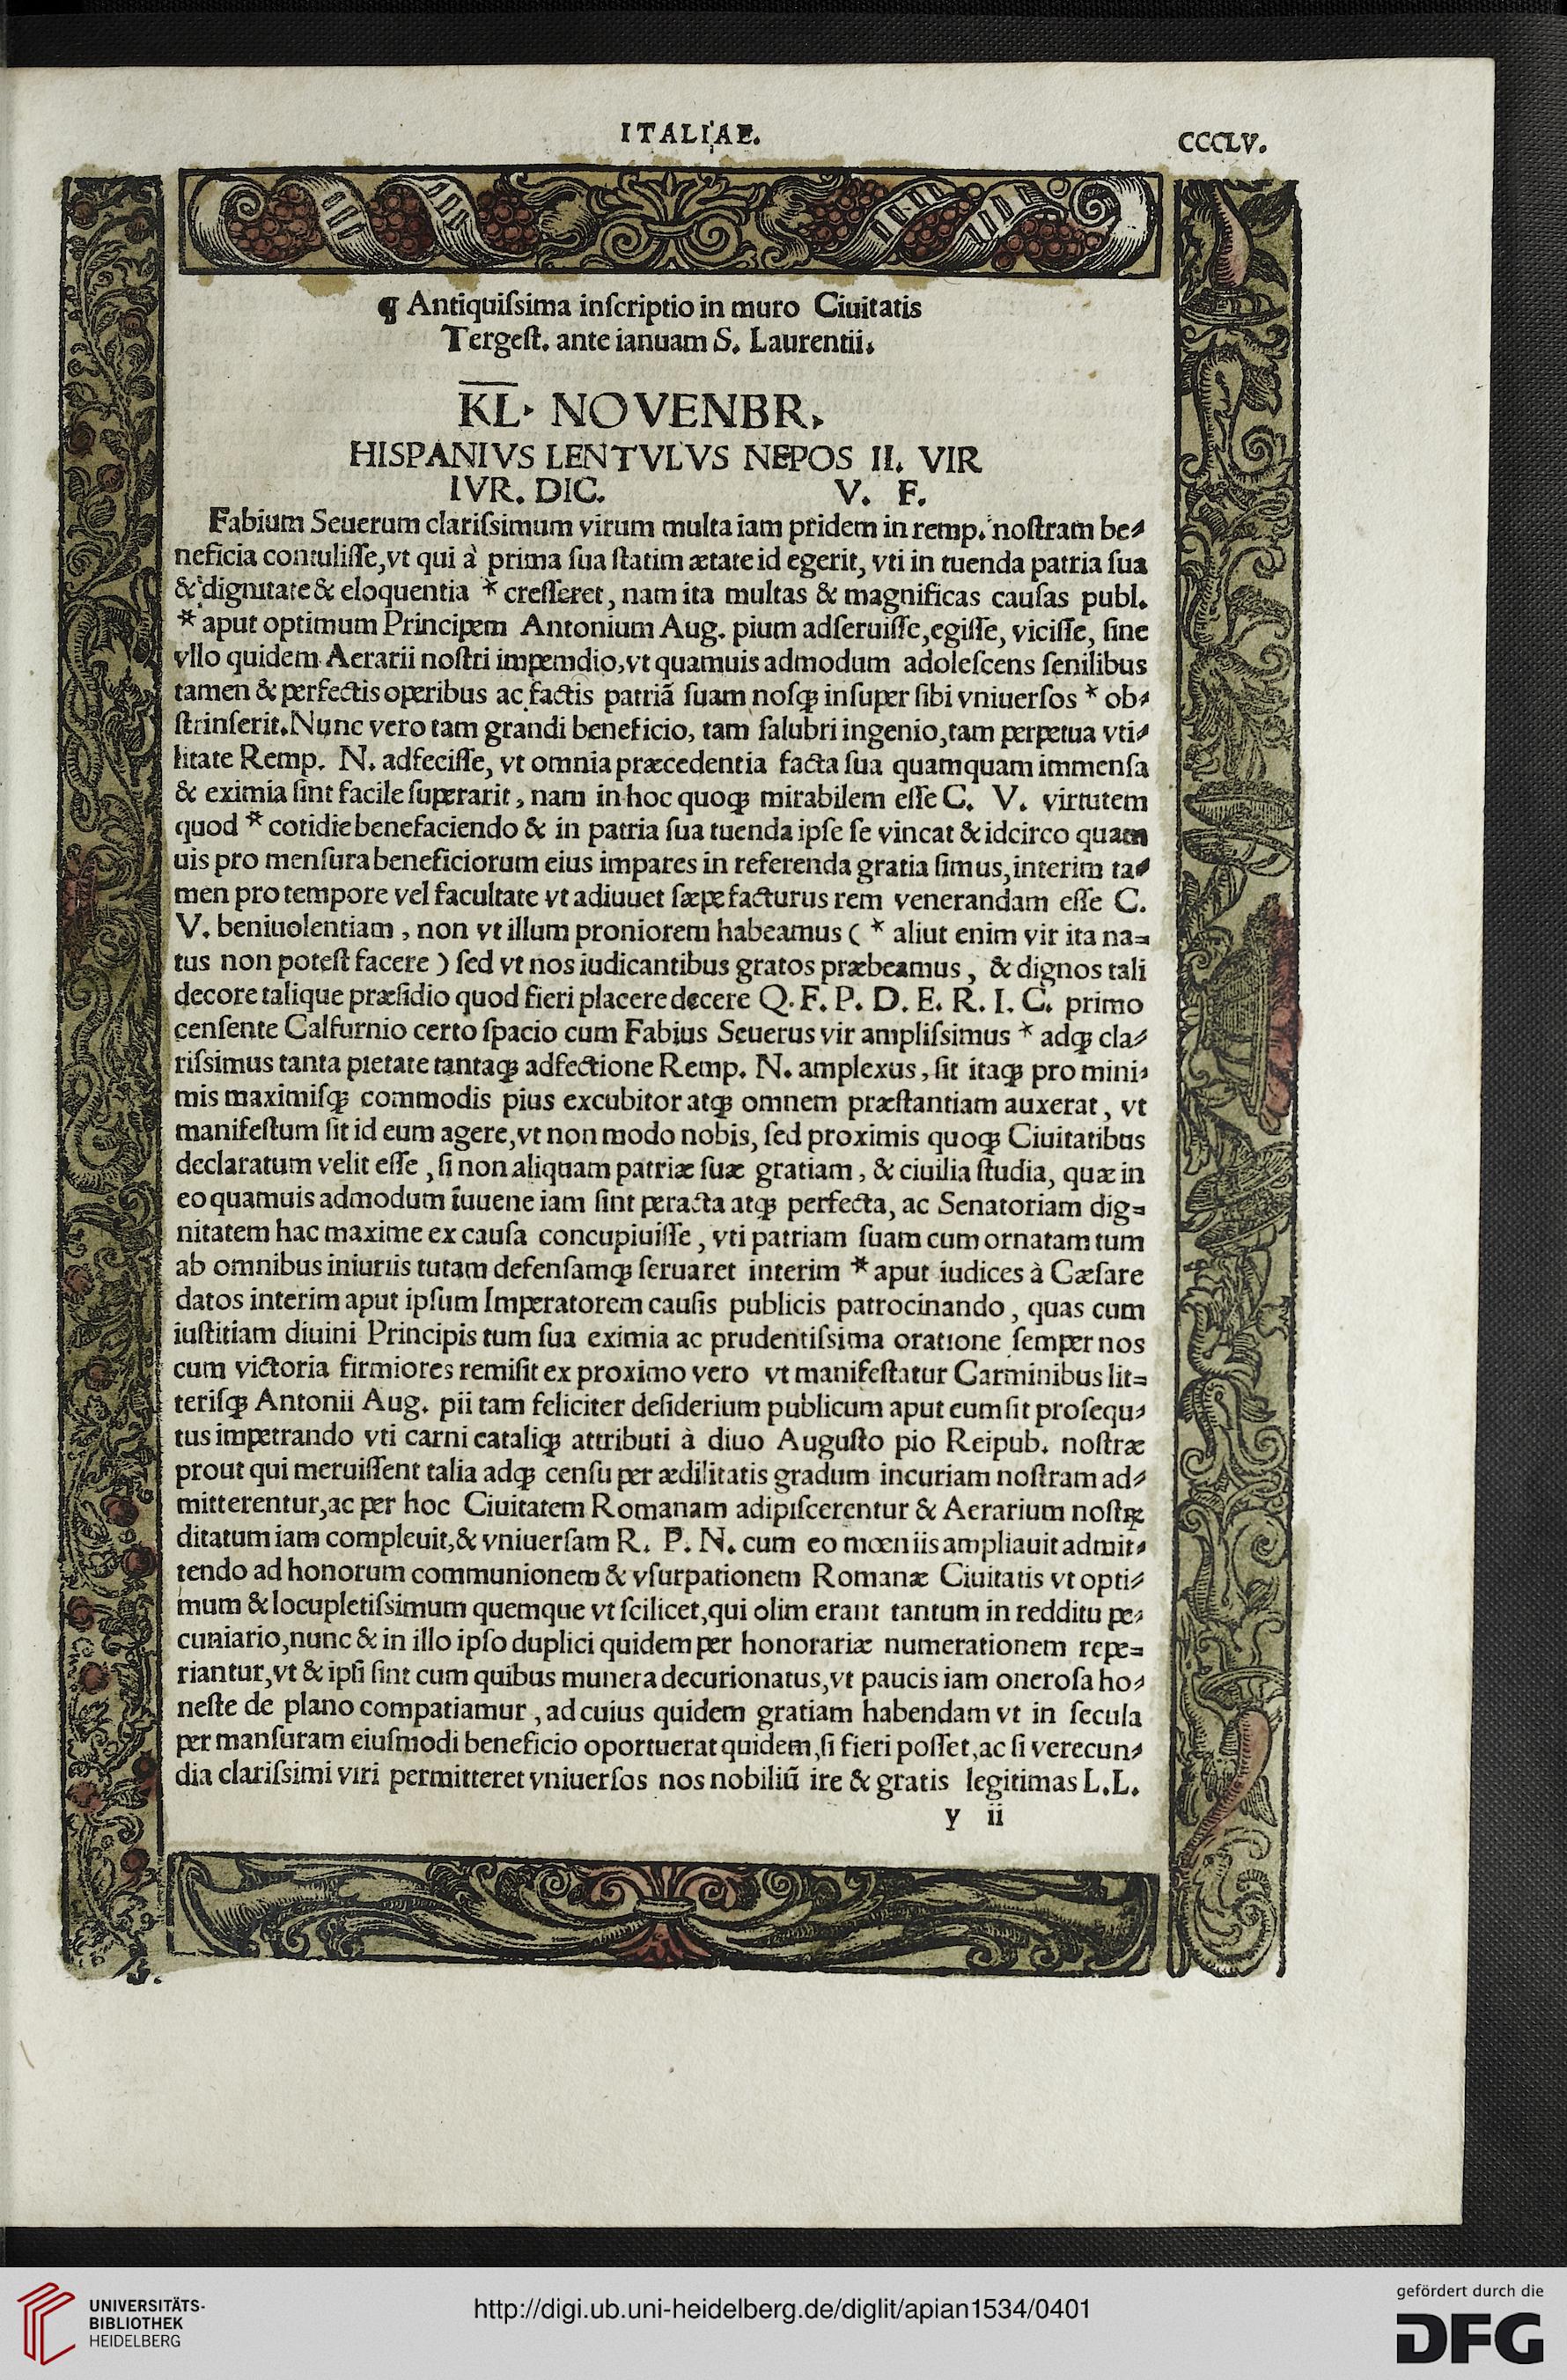 ITALIAE.
CCCLV.
¶ Antiquiſsima inſcriptio in muro Ciuitatis
Tergeſt. ante ianuam S. Laurentii.
K̅L̅. NOVENBR.
HISPANIVS LENTVLVS NEPOS II. VIR
IVR. DIC. V. F.
Fabium Seuerum clariſsimum virum multa iam pridem in remp. noſtram be⸗
neficia contuliſſe,vt qui à prima ſua ſtatim ætate id egerit, vti in tuenda patria ſua
& dignitate & eloquentia * creſſeret, nam ita multas & magnificas cauſas publ.
* aput optimum Principem Antonium Aug. pium adſeruiſſe,egiſſe, viciſſe, ſine
vllo quidem Aerarii noſtri impemdio,vt quamuis admodum adoleſcens ſenilibus
tamen & perfectis operibus ac factis patriã ſuam noſqꝫ inſuper ſibi vniuerſos * ob⸗
ſtrinſerit.Nunc vero tam grandi beneficio, tam ſalubri ingenio,tam perpetua vti⸗
litate Remp. N. adfeciſſe, vt omnia præcedentia facta ſua quamquam immenſa
& eximia ſint facile ſuperarit, nam in hoc quoqꝫ mirabilem eſſe C. V. virtutem
quod * cotidie benefaciendo & in patria ſua tuenda ipſe ſe vincat & idcirco quam
uis pro menſura beneficiorum eius impares in referenda gratia ſimus,interim ta⸗
men pro tempore vel facultate vt adiuuet ſæpe facturus rem venerandam eſſe C.
V. beniuolentiam, non vt illum proniorem habeamus ( * aliut enim vir ita na⸗
tus non poteſt facere ) ſed vt nos iudicantibus gratos præbeamus, & dignos tali
decore talique præſidio quod fieri placere decere Q. F. P. D. E. R. I. C. primo
cenſente Calfurnio certo ſpacio cum Fabius Seuerus vir ampliſsimus * adqꝫ cla⸗
riſsimus tanta pietate tantaqꝫ adfectione Remp. N. amplexus, ſit itaqꝫ pro mini⸗
mis maximiſqꝫ commodis pius excubitor atqꝫ omnem præſtantiam auxerat, vt
manifeſtum ſit id eum agere,vt non modo nobis, ſed proximis quoqꝫ Ciuitatibus
declaratum velit eſſe, ſi non aliquam patriæ ſuæ gratiam, & ciuilia ſtudia, quæ in
eo quamuis admodum iuuene iam ſint peracta atqꝫ perfecta, ac Senatoriam dig⸗
nitatem hac maxime ex cauſa concupiuiſſe, vti patriam ſuam cum ornatam tum
ab omnibus iniuriis tutam defenſamqꝫ ſeruaret interim * aput iudices à Cæſare
datos interim aput ipſum Imperatorem cauſis publicis patrocinando, quas cum
iuſtitiam diuini Principis tum ſua eximia ac prudentiſsima oratione ſemper nos
cum victoria firmiores remiſit ex proximo vero vt manifeſtatur Carminibus lit⸗
teriſqꝫ Antonii Aug. pii tam feliciter deſiderium publicum aput eum ſit proſequ⸗
tus impetrando vti carni cataliqꝫ attributi à diuo Auguſto pio Reipub. noſtræ
prout qui meruiſſent talia adqꝫ cenſu per ædilitatis gradum incuriam noſtram ad⸗
mitterentur,ac per hoc Ciuitatem Romanam adipiſcerentur & Aerarium
ditatum iam compleuit,& vniuerſam R. P. N. cum eo mœniis ampliauit admit⸗
tendo ad honorum communionem & vſurpationem Romanæ Ciuitatis vt opti⸗
mum & locupletiſsimum quemque vt ſcilicet,qui olim erant tantum in redditu pe⸗
cuniario,nunc & in illo ipſo duplici quidem per honorariæ numerationem repe⸗
riantur,vt & ipſi ſint cum quibus munera decurionatus,vt paucis iam oneroſa ho⸗
neſte de plano compatiamur, ad cuius quidem gratiam habendam vt in ſecula
per manſuram eiuſmodi beneficio oportuerat quidem,ſi fieri poſſet,ac ſi verecun⸗
dia clariſsimi viri permitteret vniuerſos nos nobiliũ ire & gratis legitimas L.L.
y ii
UNIVERSITÄTS-
BIBLIOTHEK
HEIDELBERG
http://digi.ub.uni-heidelberg.de/diglit/apian1534/0401
gefördert durch die
DFG